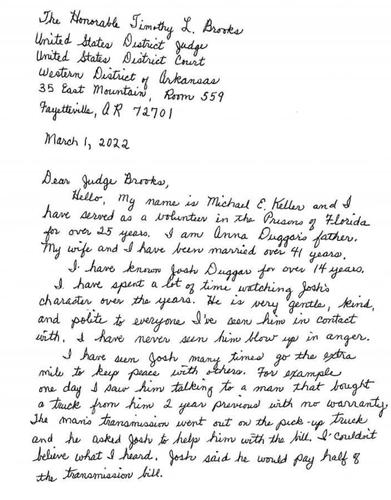 The Honorable Timothy L. Brooks
United States District Judge
United States District Court
Western District of Arkansas
35 East Mountain, Room 559
Fayetteville, AR 72701
March 1, 2022
Dear Judge Brooks,
Hello, My name is Michael E. Keller and I
have served as a volunteer in the Prisons of Florida
for over 25 years. I am Anna Duggar's father.
My wife and I have been married over 41 years.
I have known Josh Duggar for over 14 years.
I have spent a lot of time watching Josh's
character over the years. He is very gentle, kind,
and polite to everyone I've seen him in contact
with. I have never seen him blow up in anger.
I have seen Josh many times go the extra
mile to keep peace with others. For example
one day I saw him talking to a man that bought
a truck from him 2 year previous with no warranty.
The man's transmission went out on the pick-up truck
and he asked Josh to help him with the bill. I couldn't
believe what I heard. Josh said he would pay half of
the transmission bill.